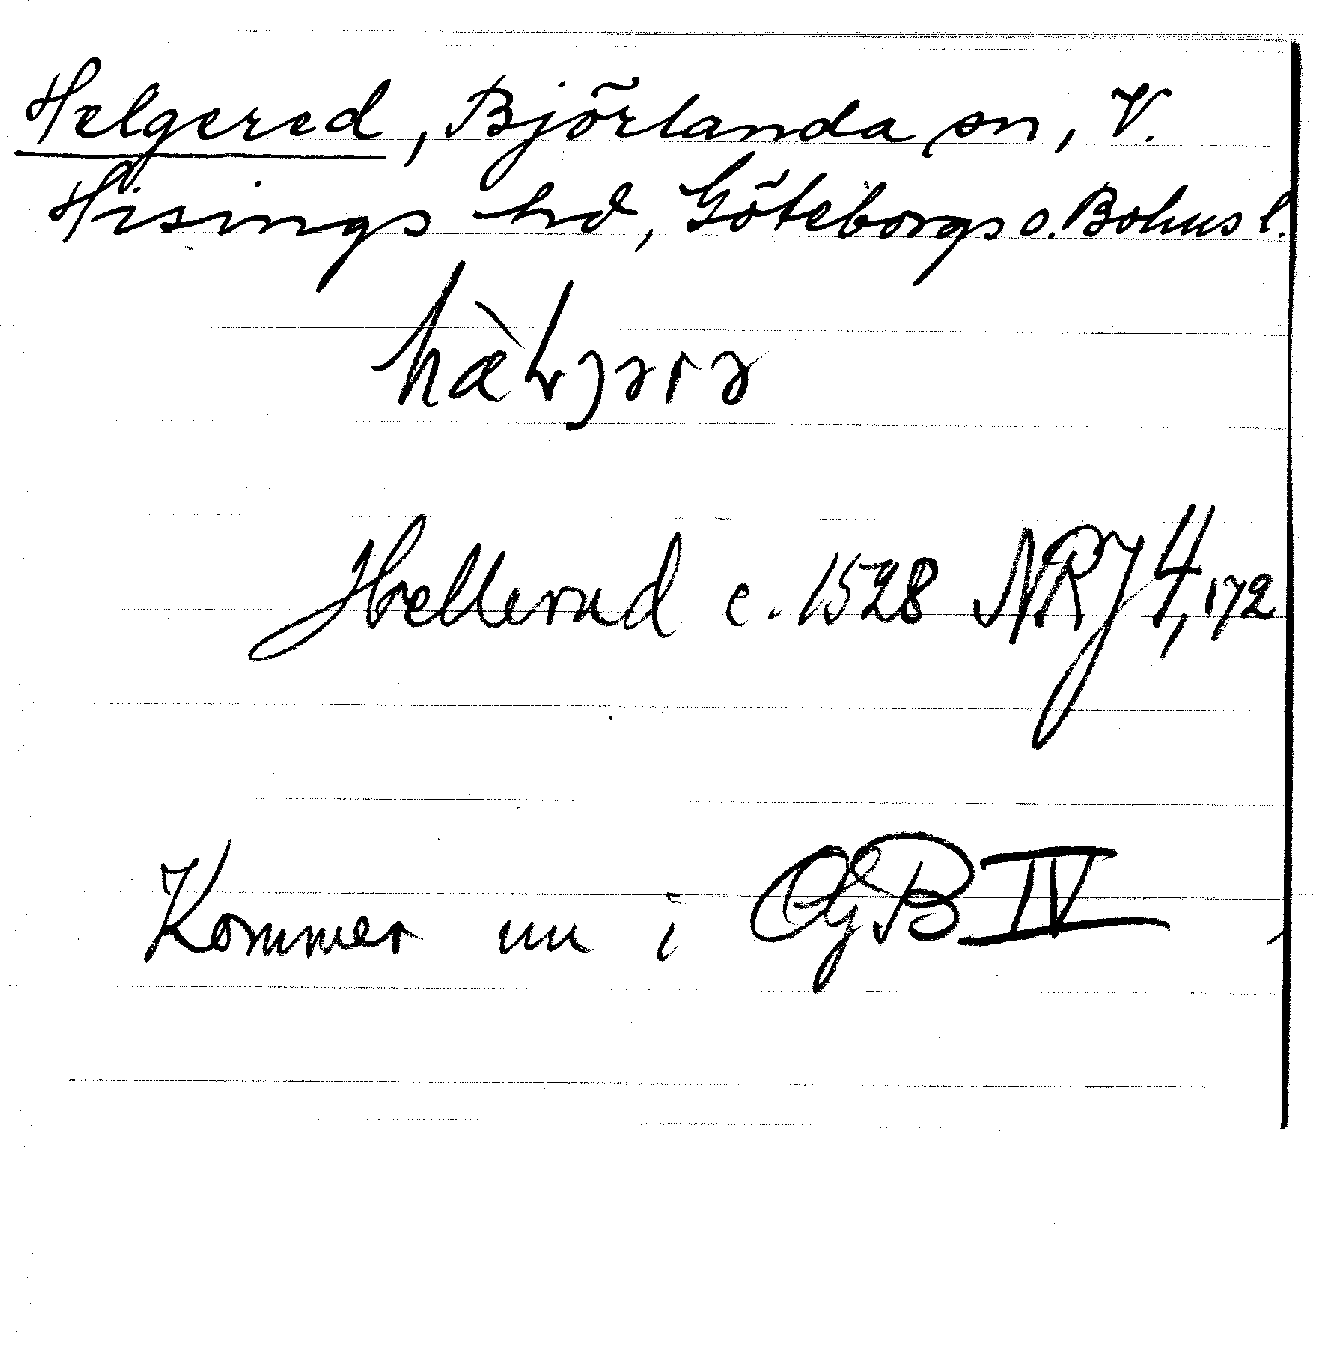 Helgered, Björlanda sn, V.
Hisings hd, Göteborgs o. Bohus l.
Hellerud c. 1528 NRJ 4, 172
Kommer nu i OGB IV